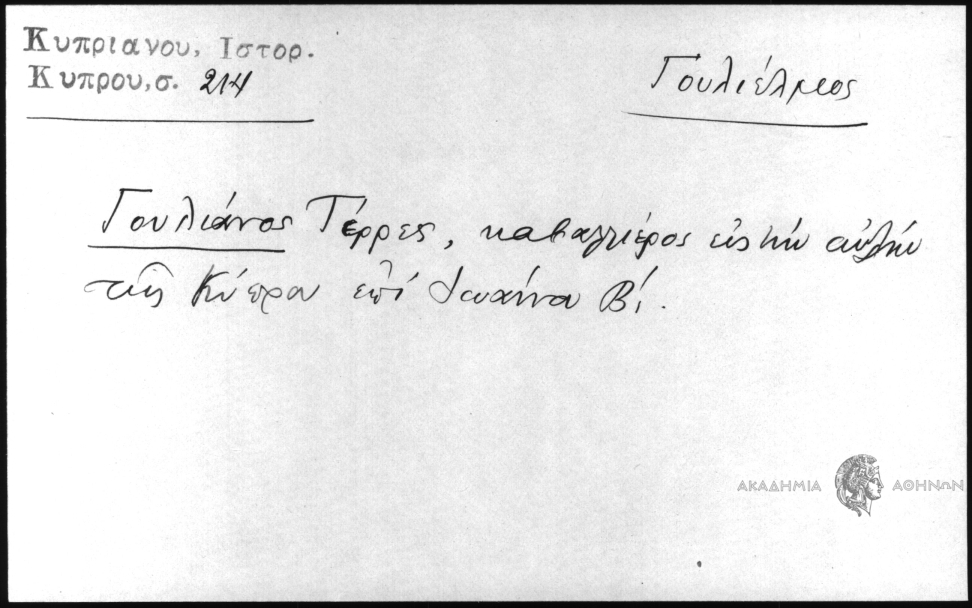 Κυπριανου, Ιστορ.
Κυπρου, σ. 214
Γουλιέλμος
Γουλιάνος Τέρρες, καβαλιέρος εἰς τὴν αὐλὴν
τῆς Κύπρου ἐπί Ἰωάννου Β΄.
ΑΚΑΔΗΜΙΑ ΑΘΗΝΩΝ